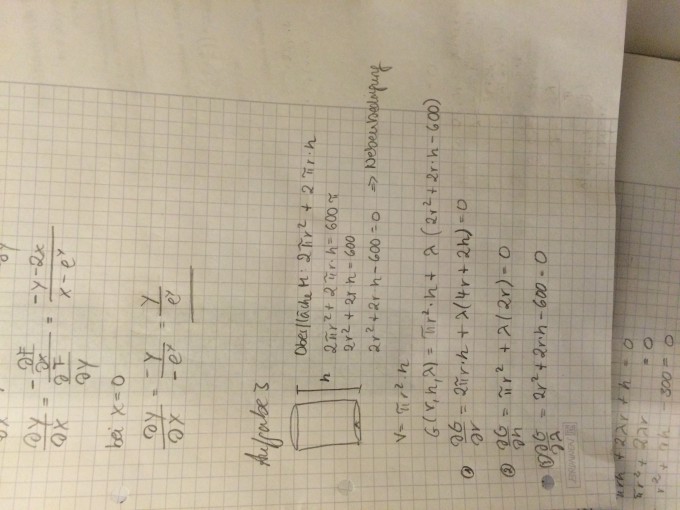 ∂y/∂x = - (∂F/∂x)/(∂F/∂y) = (-y-2x)/(x-e^y)
bei x=0
∂y/∂x = -y/-e^y = y/e^y
Aufgabe 3
h
Oberfläche M: 2πr² + 2πr·h
2πr² + 2πr·h = 600π
2r² + 2r·h = 600
2r² + 2r·h - 600 = 0 => Nebenbedingung
V = πr²·h
G(r,h,λ) = πr²·h + λ(2r² + 2r·h - 600)
① ∂G/∂r = 2πr·h + λ(4r + 2h) = 0
② ∂G/∂h = πr² + λ(2r) = 0
∂G/∂λ = 2r² + 2r·h - 600 = 0
πrh + 2λr + h = 0
πr² + 2λr = 0
- 300 = 0